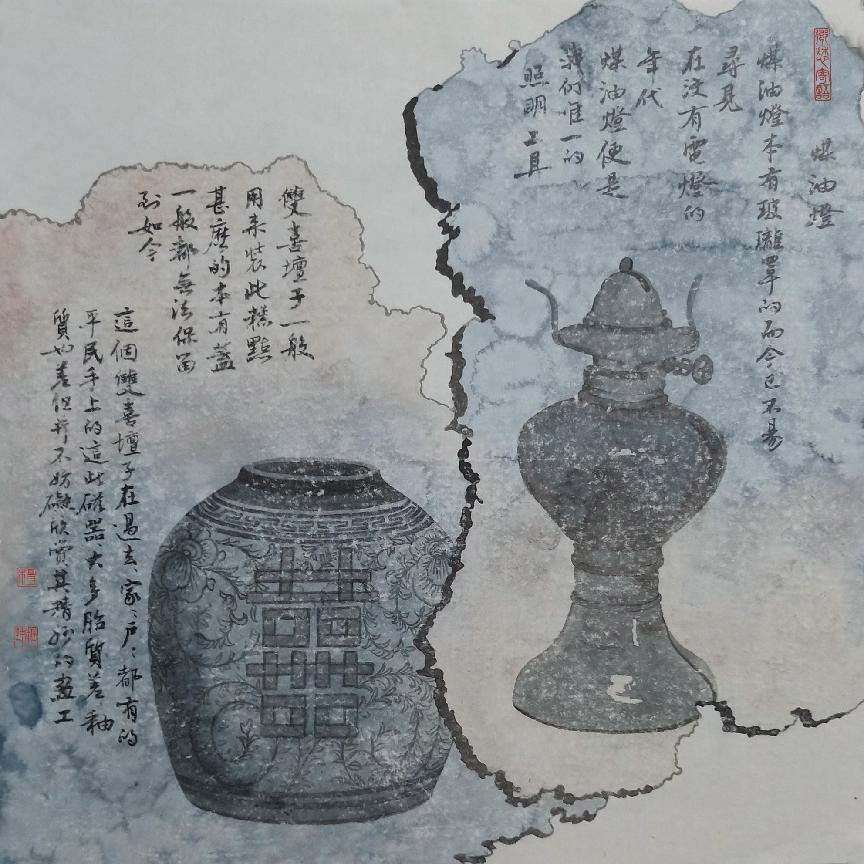 煤油燈
煤油燈本有玻璃罩的而今已不易
尋見
在沒有電燈的
年代
煤油燈便是
我们唯一的
照明工具
雙喜壇子一般
用来裝些糕點
甚麽的本有蓋
一般都無法保留
到如今
這個雙喜壇子在過去家家户户都有的
平民手上的這些磁器大多胎質差釉
質也差但并不妨礙欣賞其精妙的畫工
囍